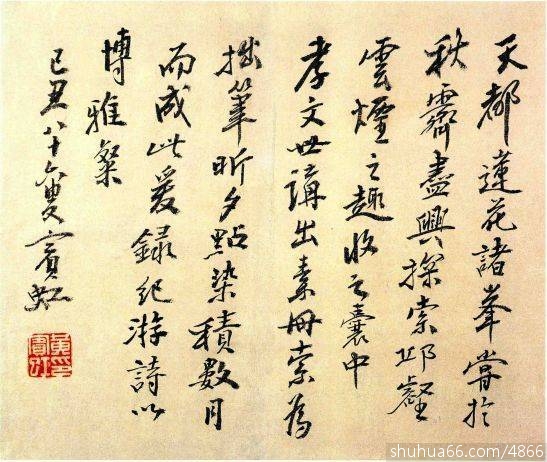 天都蓮花諸峯嘗於
秋霽盡興探索邱壑
雲煙之趣收之囊中
孝文世講出素冊索為
拙筆昕夕點染積數月
而成此爰錄紀游詩以
博雅粲
己丑八十六叟賓虹
黃賓虹
shuhua66.com/4866